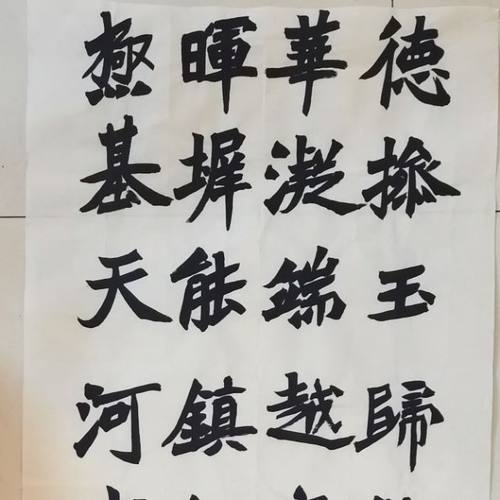 德㧑玉歸
華凝端越
暉墀能鎮
極基天河